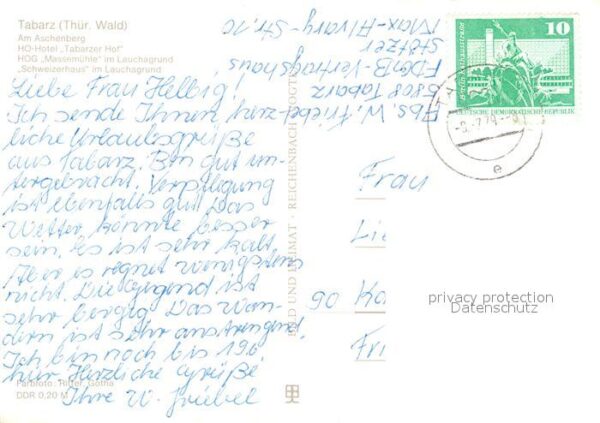 Tabarz (Thür. Wald)
Am Aschenberg
HO-Hotel „Tabarzer Hof"
HOG „Massemühle" im Lauchagrund
„Schweizerhaus" im Lauchagrund
Liebe Frau Helbig!
Ich sende Ihnen herz-
liche Urlaubsgrüße
aus Tabarz. Bin gut un-
tergebracht. Verpflegung
ist ebenfalls gut. Das
Wetter könnte besser
sein. Es ist sehr kalt.
Aber es regnet wenigstens
nicht. Die Gegend ist
sehr bergig. Das Wan-
dern ist sehr anstrengend.
Ich bin noch bis 19.6.
hier. Herzliche Grüße
Ihre W. Friebel
Farbfoto: Ritter, Gotha
DDR 0,20 M
Abs. W. Friebel
5808 Tabarz
FDGB-Vertragshaus
Stötzer
Max-Alvary-Str. 10
BILD UND HEIMAT · REICHENBACH (VOGTL)
10
DEUTSCHE DEMOKRATISCHE REPUBLIK
e
Frau
90
privacy protection
Datenschutz